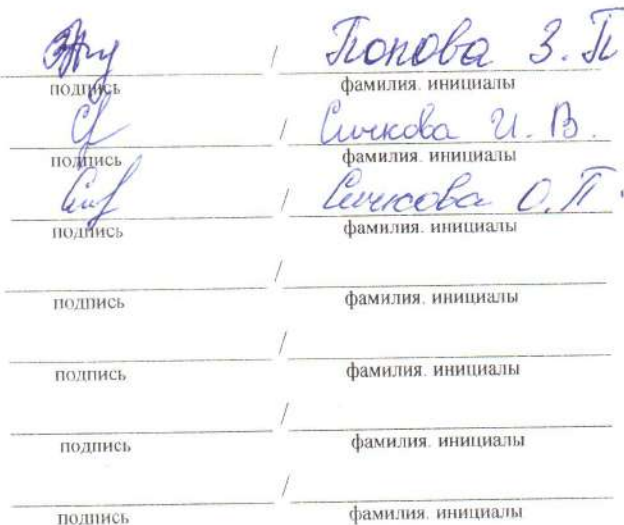 / Попова З. П
подпись фамилия. инициалы
/ Сичкова И. В.
подпись фамилия. инициалы
/ Сичкова О. П.
подпись фамилия. инициалы
/
подпись фамилия. инициалы
/
подпись фамилия. инициалы
/
подпись фамилия. инициалы
/
подпись фамилия. инициалы